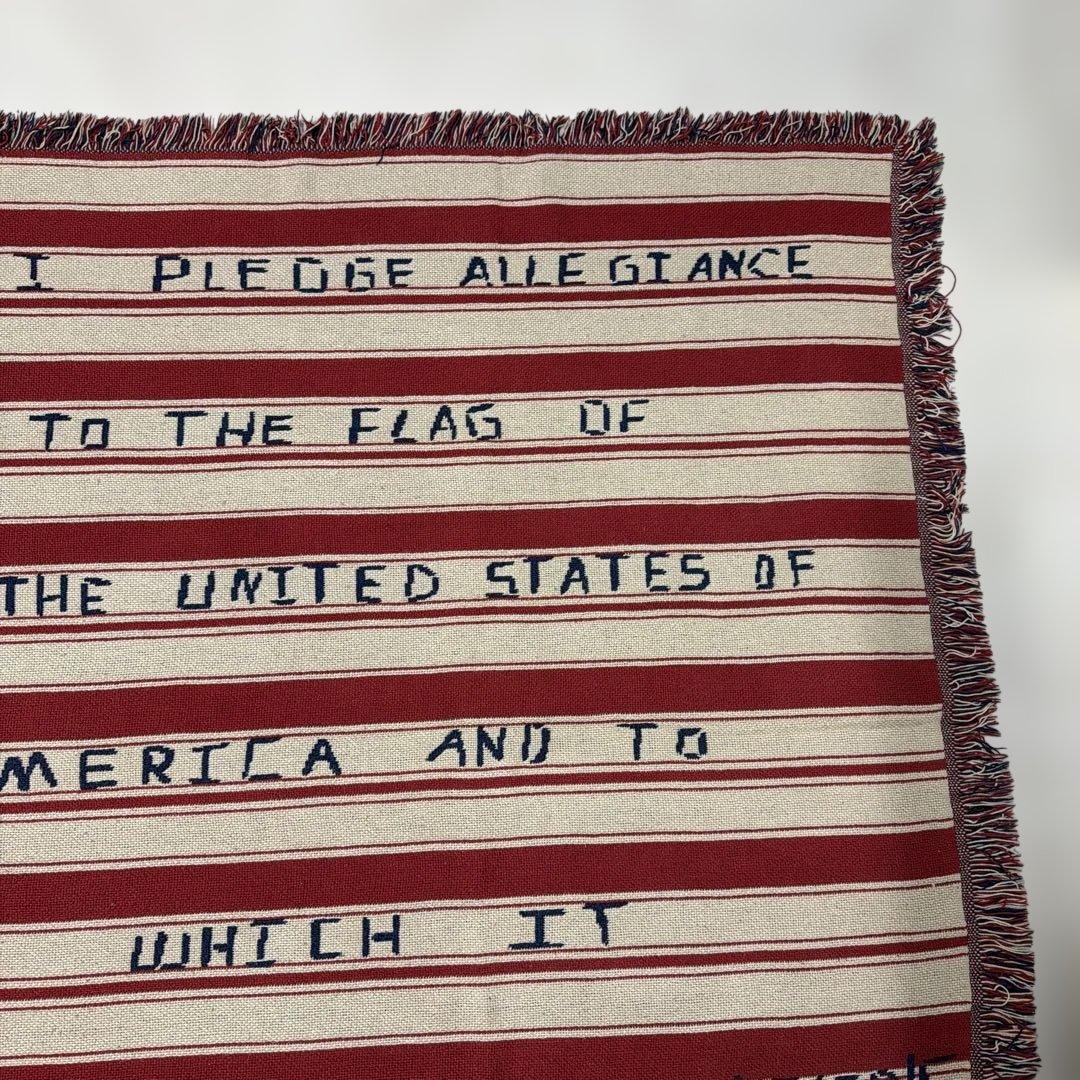 I PLEDGE ALLEGIANCE
TO THE FLAG OF
THE UNITED STATES OF
MERICA AND TO
WHICH IT